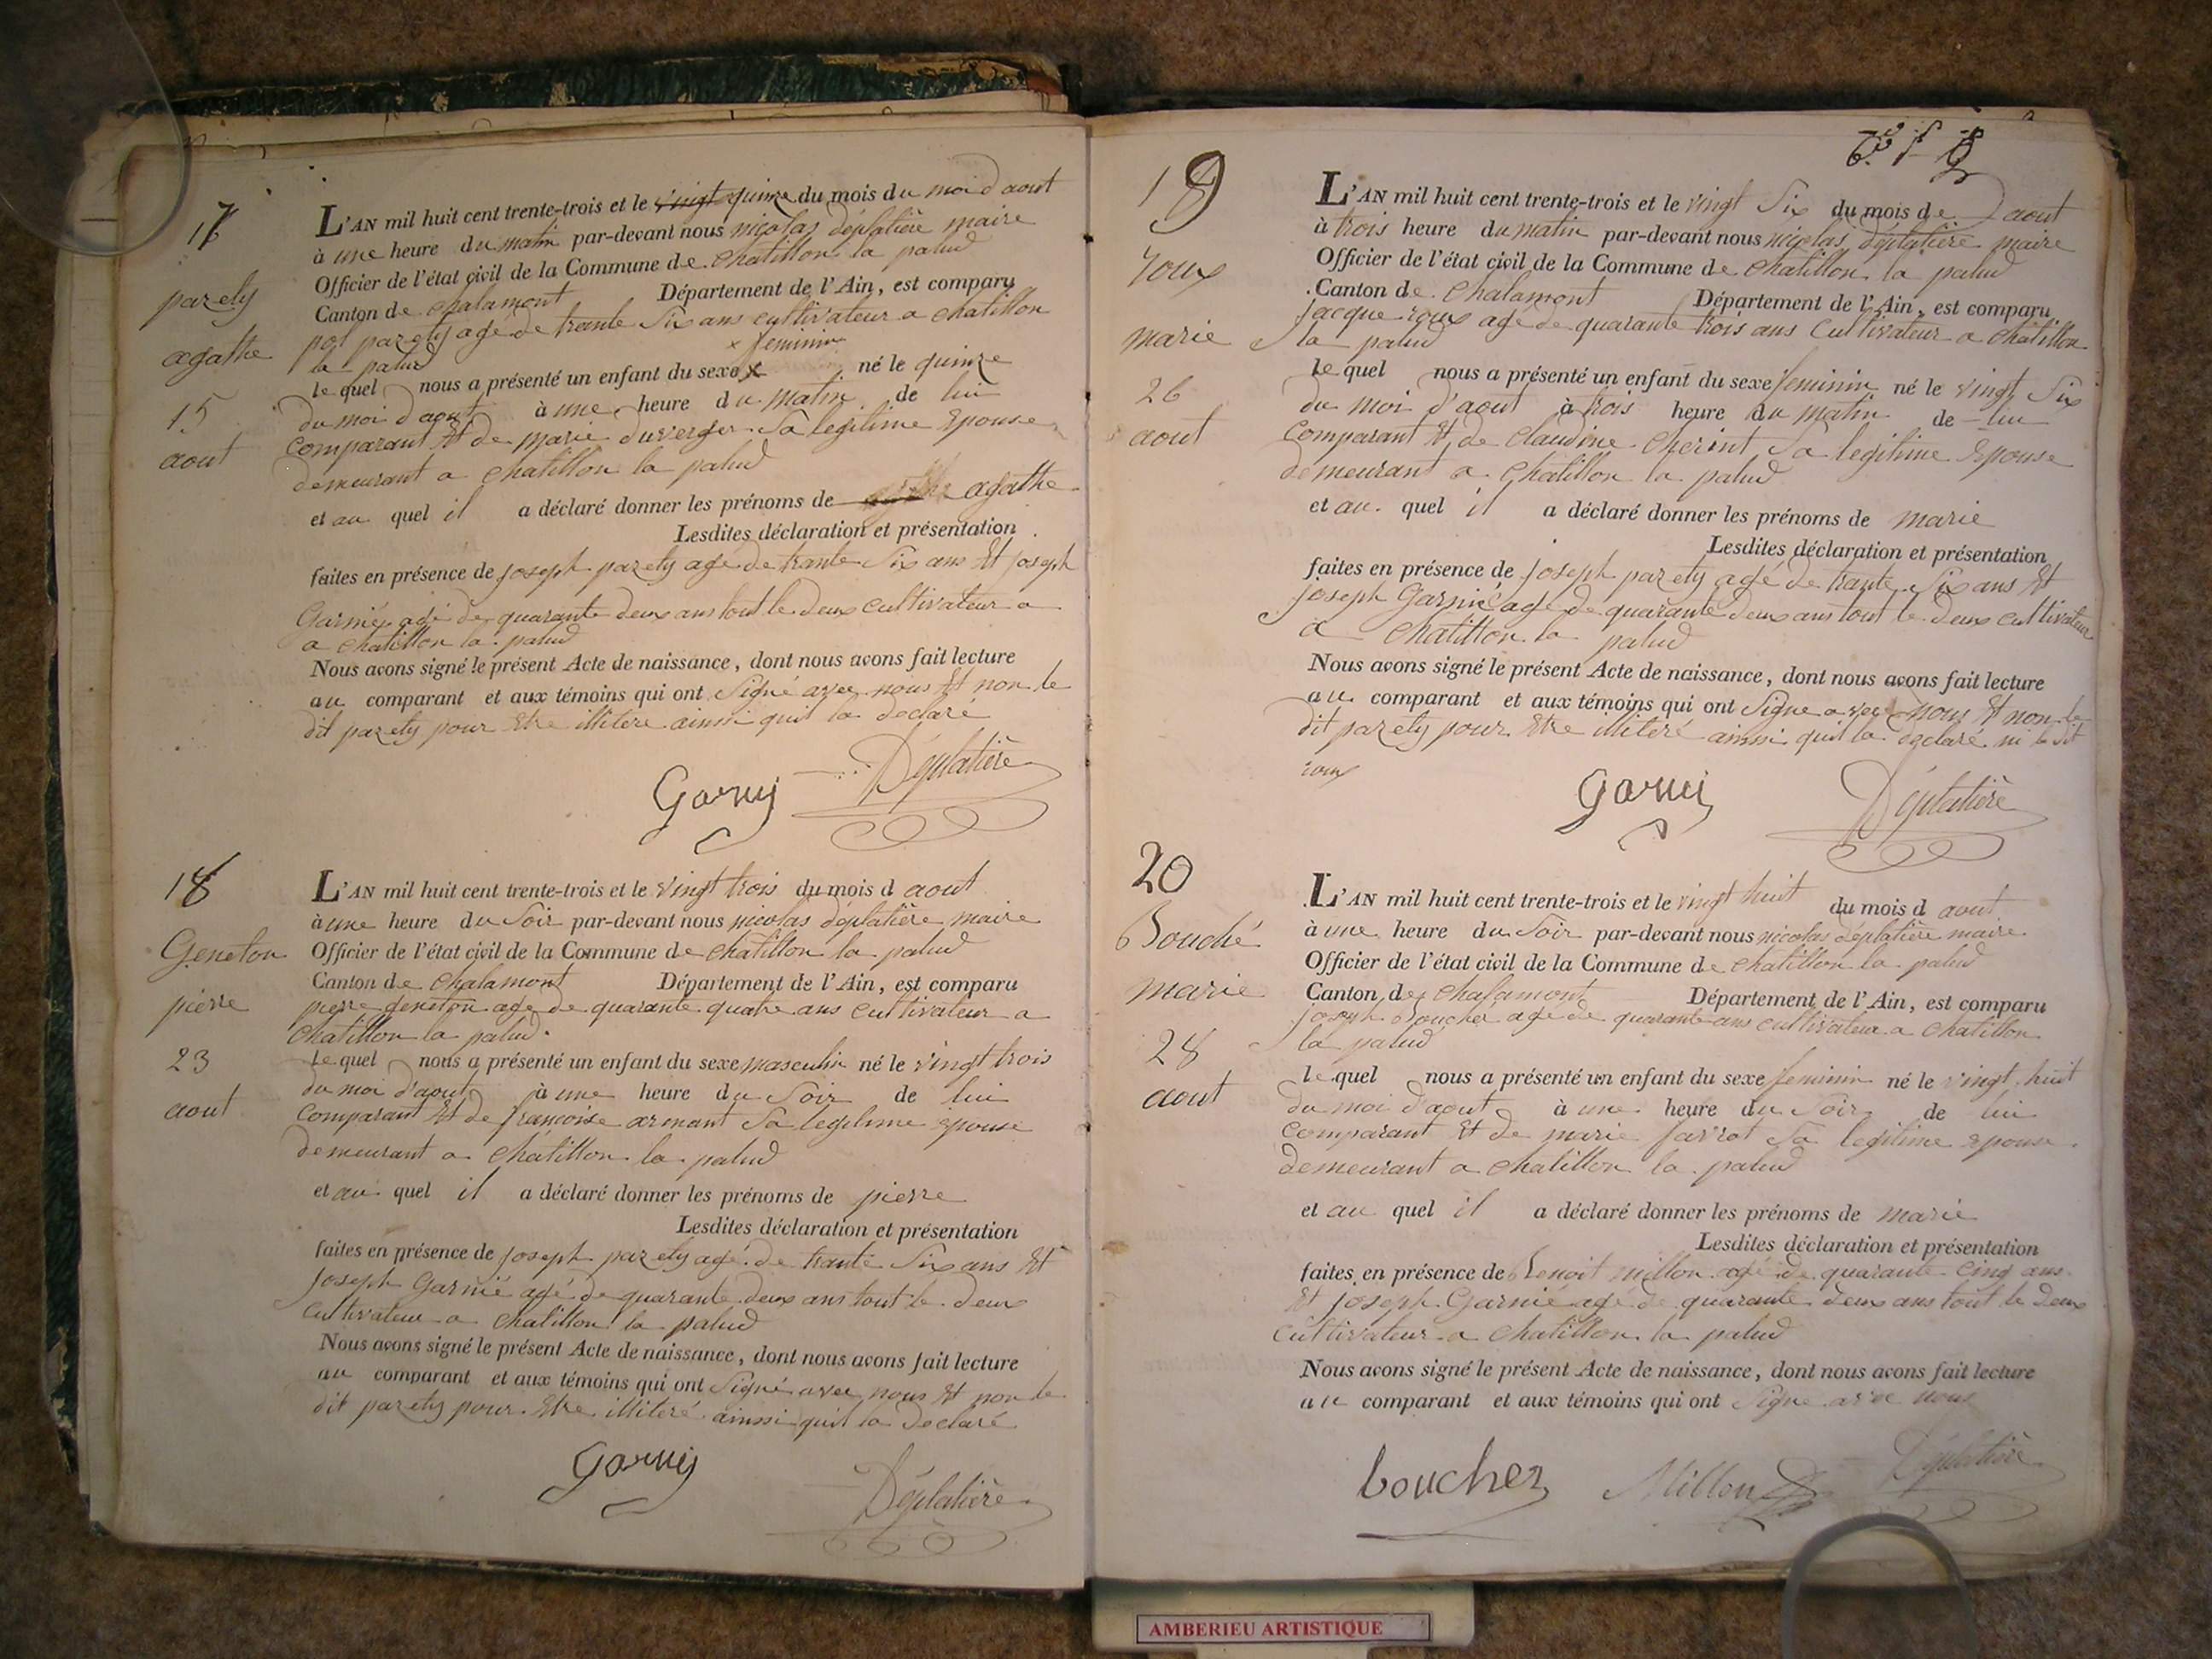 17
parety
agathe
15
aout
L'AN mil huit cent trente-trois et le vingt quinze du mois du moi d aout
à une heure du matin par-devant nous nicolas déplatière maire
Officier de l'état civil de la Commune de chatillon la palud
Canton de chalamont Département de l'Ain, est comparu
parety agé de trante Six ans cultivateur a chatillon
la palud
x feminin
le quel nous a présenté un enfant du sexe x né le quinze
du moi d aout à une heure du matin de lui
comparant Et de marie duverger Sa legitime Epouse
demeurant a chatillon la palud
et au quel il a déclaré donner les prénoms de agathe
Lesdites déclaration et présentation
faites en présence de joseph parety agé de trante Six ans Et joseph
Garnié agé de quarante deux ans tout le deux cultivateur a
a chatillon la palud
Nous avons signé le présent Acte de naissance, dont nous avons fait lecture
au comparant et aux témoins qui ont Signé avec nous Et non le
dit parety pour Etre illiteré ainssi quil la declaré
Garnij Déplatière
18
Geneton
pierre
23
aout
L'AN mil huit cent trente-trois et le vingt trois du mois d aout
à une heure du Soir par-devant nous nicolas déplatière maire
Officier de l'état civil de la Commune de chatillon la palud
Canton de chalamont Département de l'Ain, est comparu
pierre geneton agé de quarante quatre ans cultivateur a
chatillon la palud
le quel nous a présenté un enfant du sexe masculin né le vingt trois
du moi d'aout à une heure du Soir de lui
comparant Et de francoise armant Sa legitime épouse
demeurant a chatillon la palud
et au quel il a déclaré donner les prénoms de pierre
Lesdites déclaration et présentation
faites en présence de joseph parety agé de trante Six ans Et
joseph Garnié agé de quarante deux ans tout le deux
cultivateur a chatillon la palud
Nous avons signé le présent Acte de naissance, dont nous avons fait lecture
au comparant et aux témoins qui ont Signé avec nous Et non le
dit parety pour Etre illiteré ainssi quil la declaré
Garnij Déplatière
19
roux
marie
26
aout
L'AN mil huit cent trente-trois et le vingt Six du mois de d aout
à trois heure du matin par-devant nous nicolas déplatière maire
Officier de l'état civil de la Commune de chatillon la palud
Canton de chalamont Département de l'Ain, est comparu
jacque roux agé de quarante trois ans cultivateur a chatillon
la palud
le quel nous a présenté un enfant du sexe feminin né le vingt Six
du moi d'aout à trois heure du matin de lui
comparant Et de claudine cherint Sa legitime Epouse
demeurant a chatillon la palud
et au quel il a déclaré donner les prénoms de marie
Lesdites déclaration et présentation
faites en présence de joseph parety agé de trante Six ans Et
joseph Garnié agé de quarante deux ans tout le deux cultivateur
a chatillon la palud
Nous avons signé le présent Acte de naissance, dont nous avons fait lecture
au comparant et aux témoins qui ont Signe avec nous Et non le
dit parety pour Etre illiteré ainssi quil la declaré ni le dit
roux
Garnij Déplatière
20
Bouché
marie
28
aout
L'AN mil huit cent trente-trois et le vingt huit du mois d aout
à une heure du Soir par-devant nous nicolas déplatière maire
Officier de l'état civil de la Commune de chatillon la palud
Canton de chalamont Département de l'Ain, est comparu
joseph Boucher agé de quarante ans cultivateur a chatillon
la palud
le quel nous a présenté un enfant du sexe feminin né le vingt huit
du moi d'aout à une heure du Soir de lui
comparant Et de marie Sa legitime epouse
demeurant a chatillon la palud
et au quel il a déclaré donner les prénoms de marie
Lesdites déclaration et présentation
faites en présence de Benoit millon agé de quarante Cinq ans
Et joseph Garnié agé de quarante deux ans tout le deux
cultivateur a chatillon la palud
Nous avons signé le présent Acte de naissance, dont nous avons fait lecture
au comparant et aux témoins qui ont Signe avec nous
boucher Millon Déplatière
AMBERIEU ARTISTIQUE